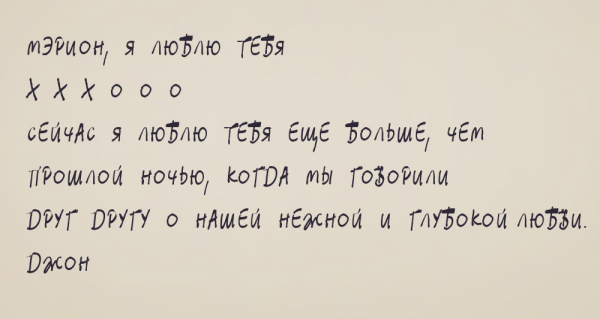 мэрион, я люблю тебя
X X X O O O
сейчас я люблю тебя еще больше, чем
прошлой ночью, когда мы говорили
друг другу о нашей нежной и глубокой любви.
Джон